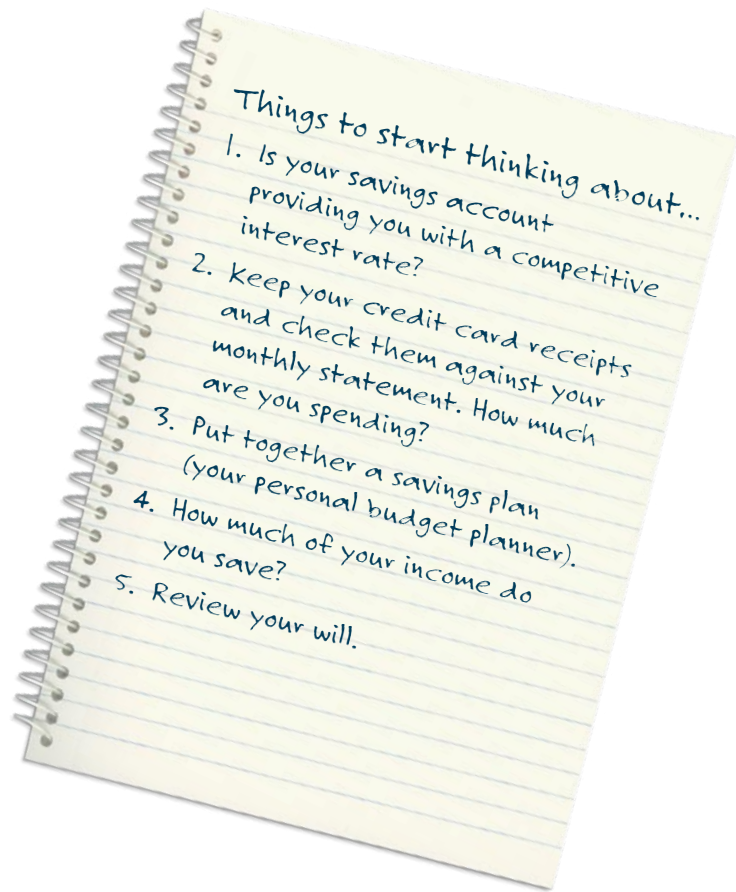 Things to start thinking about...
1. Is your savings account
providing you with a competitive
interest rate?
2. Keep your credit card receipts
and check them against your
monthly statement. How much
are you spending?
3. Put together a savings plan
(your personal budget planner).
4. How much of your income do
you save?
5. Review your will.